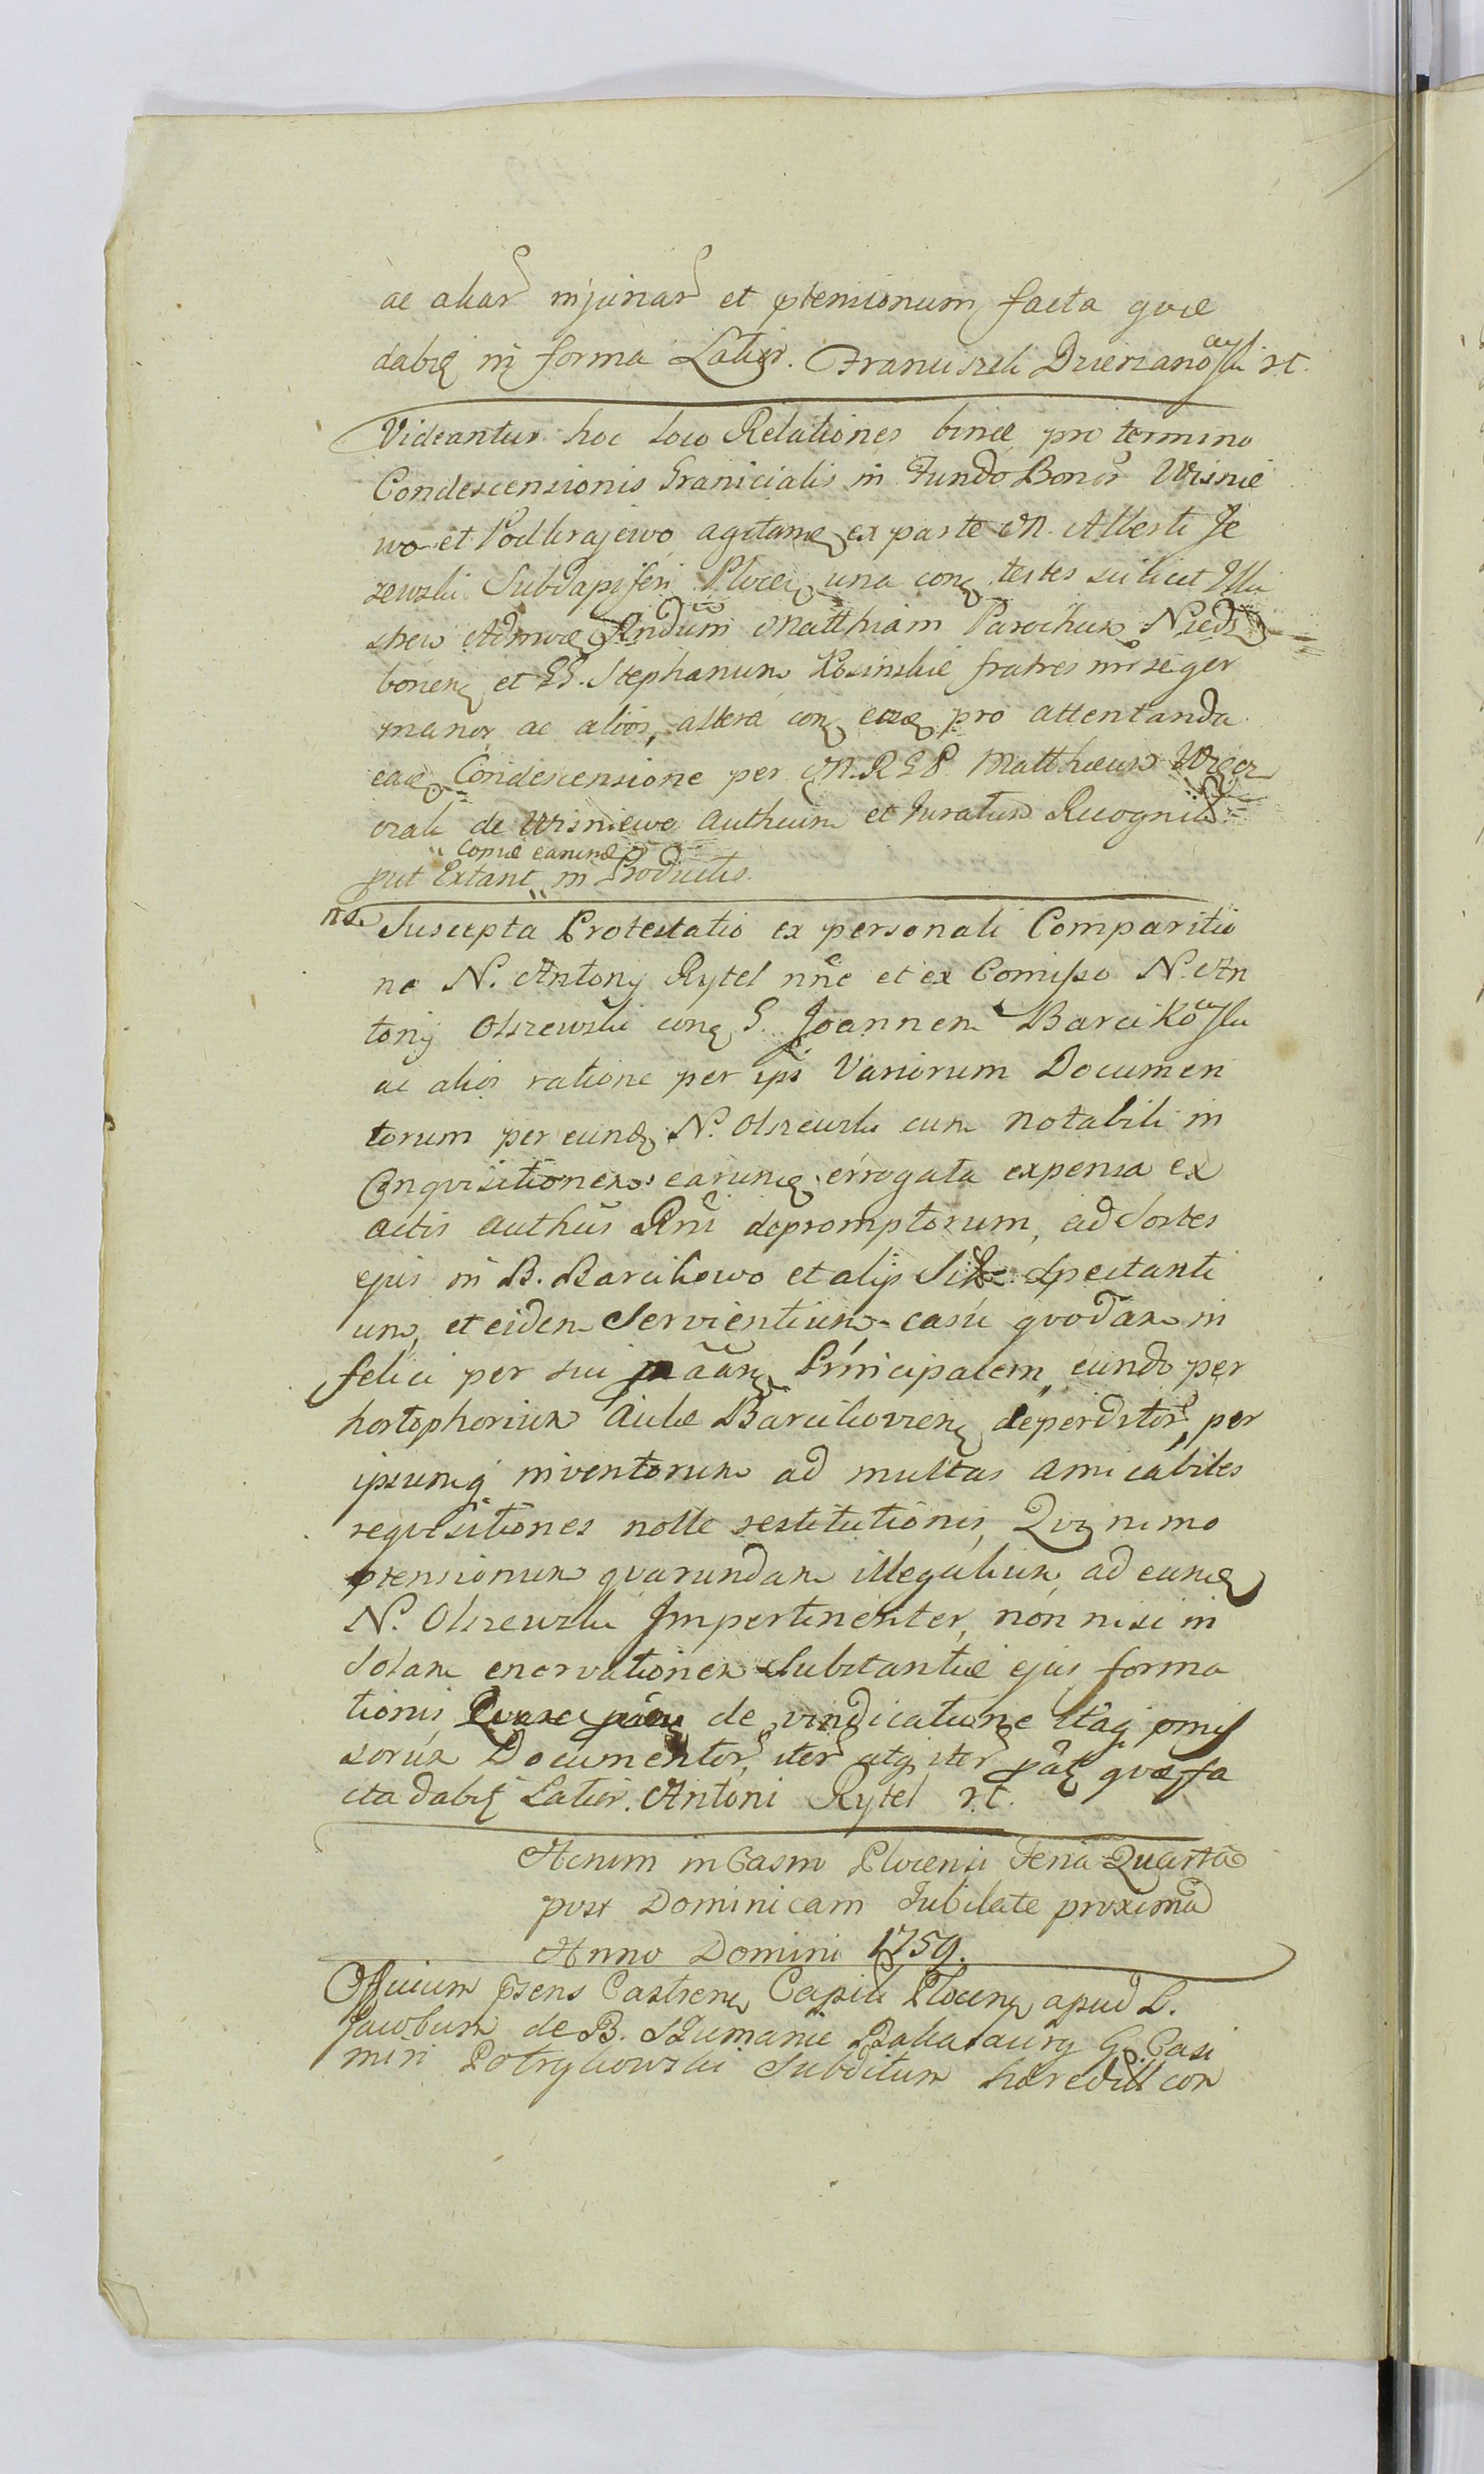 ac aliar injuriar et ptensionum facta quæ
dabis in forma Latior. Franciszek Dzierzanowski rc.
Videantur hoc loco Relationes binæ pro termino
Condescensionis Granicialis in Fundo Bonor Wisnie
wo et Podkrajewo agitamę ex parte M. Alberti Je
zewski Subdapiferi Plocen, una conę testes scilicet Illu
Admodę Rndum Matthiam Parochum Niedz
bonenę et GG. Stephanum Kosinskie fratres inr se ger
manos ac alios, altera conę eosdę pro attentanda
eadę Condescensione per M. RGP. Matthæum
de Wisniewo Authcum et Juratum Recognit
Copiæ earumdę
put Extant in Productis.
Na. Suscepta Protestatio ex personali Comparitio
ne N. Antonij Rytel nne et ex Comisso N. An
tonij Olszewski conę G. Joannem Barcikowski
ac alios ratione per ips Variorum Documen
torum per eundę N. Olszewski cum notabili in
Conquisitionem earumdę errogata expensa ex
actis authūs Rni depromptorum, ad Sortes
ejus in B. Barcikowo et alijs Sibi Spectanti
um, et eidem Servientium casu quodam in
felici per sui Principalem, eundo per
hortophorium aulæ Barcikovienę deperditor, per
ipsumq inventorum ad multas amicabiles
requisitiones nolle restitutionis, Quinimo
ptensionum quarundam illegalium ad eundę
N. Olszewski Impertinenter, non nisi in
Solam enervationem Substantiæ ejus forma
tionis de vindicatione itaq omis
sorum Documentor, iter atq iter quæ fa
cta dabis Latior. Antoni Rytel rc.
Actum in Casro Plocensi Feria Quarta
post Dominicam Jubilate proxima
Anno Domini 1759.
Officium psens Castrenę Capitle Plocenę apud L.
Jacobum de B. Szumanie Bakalarę G. Casi
miri Potrykowski Subditum hæredill con